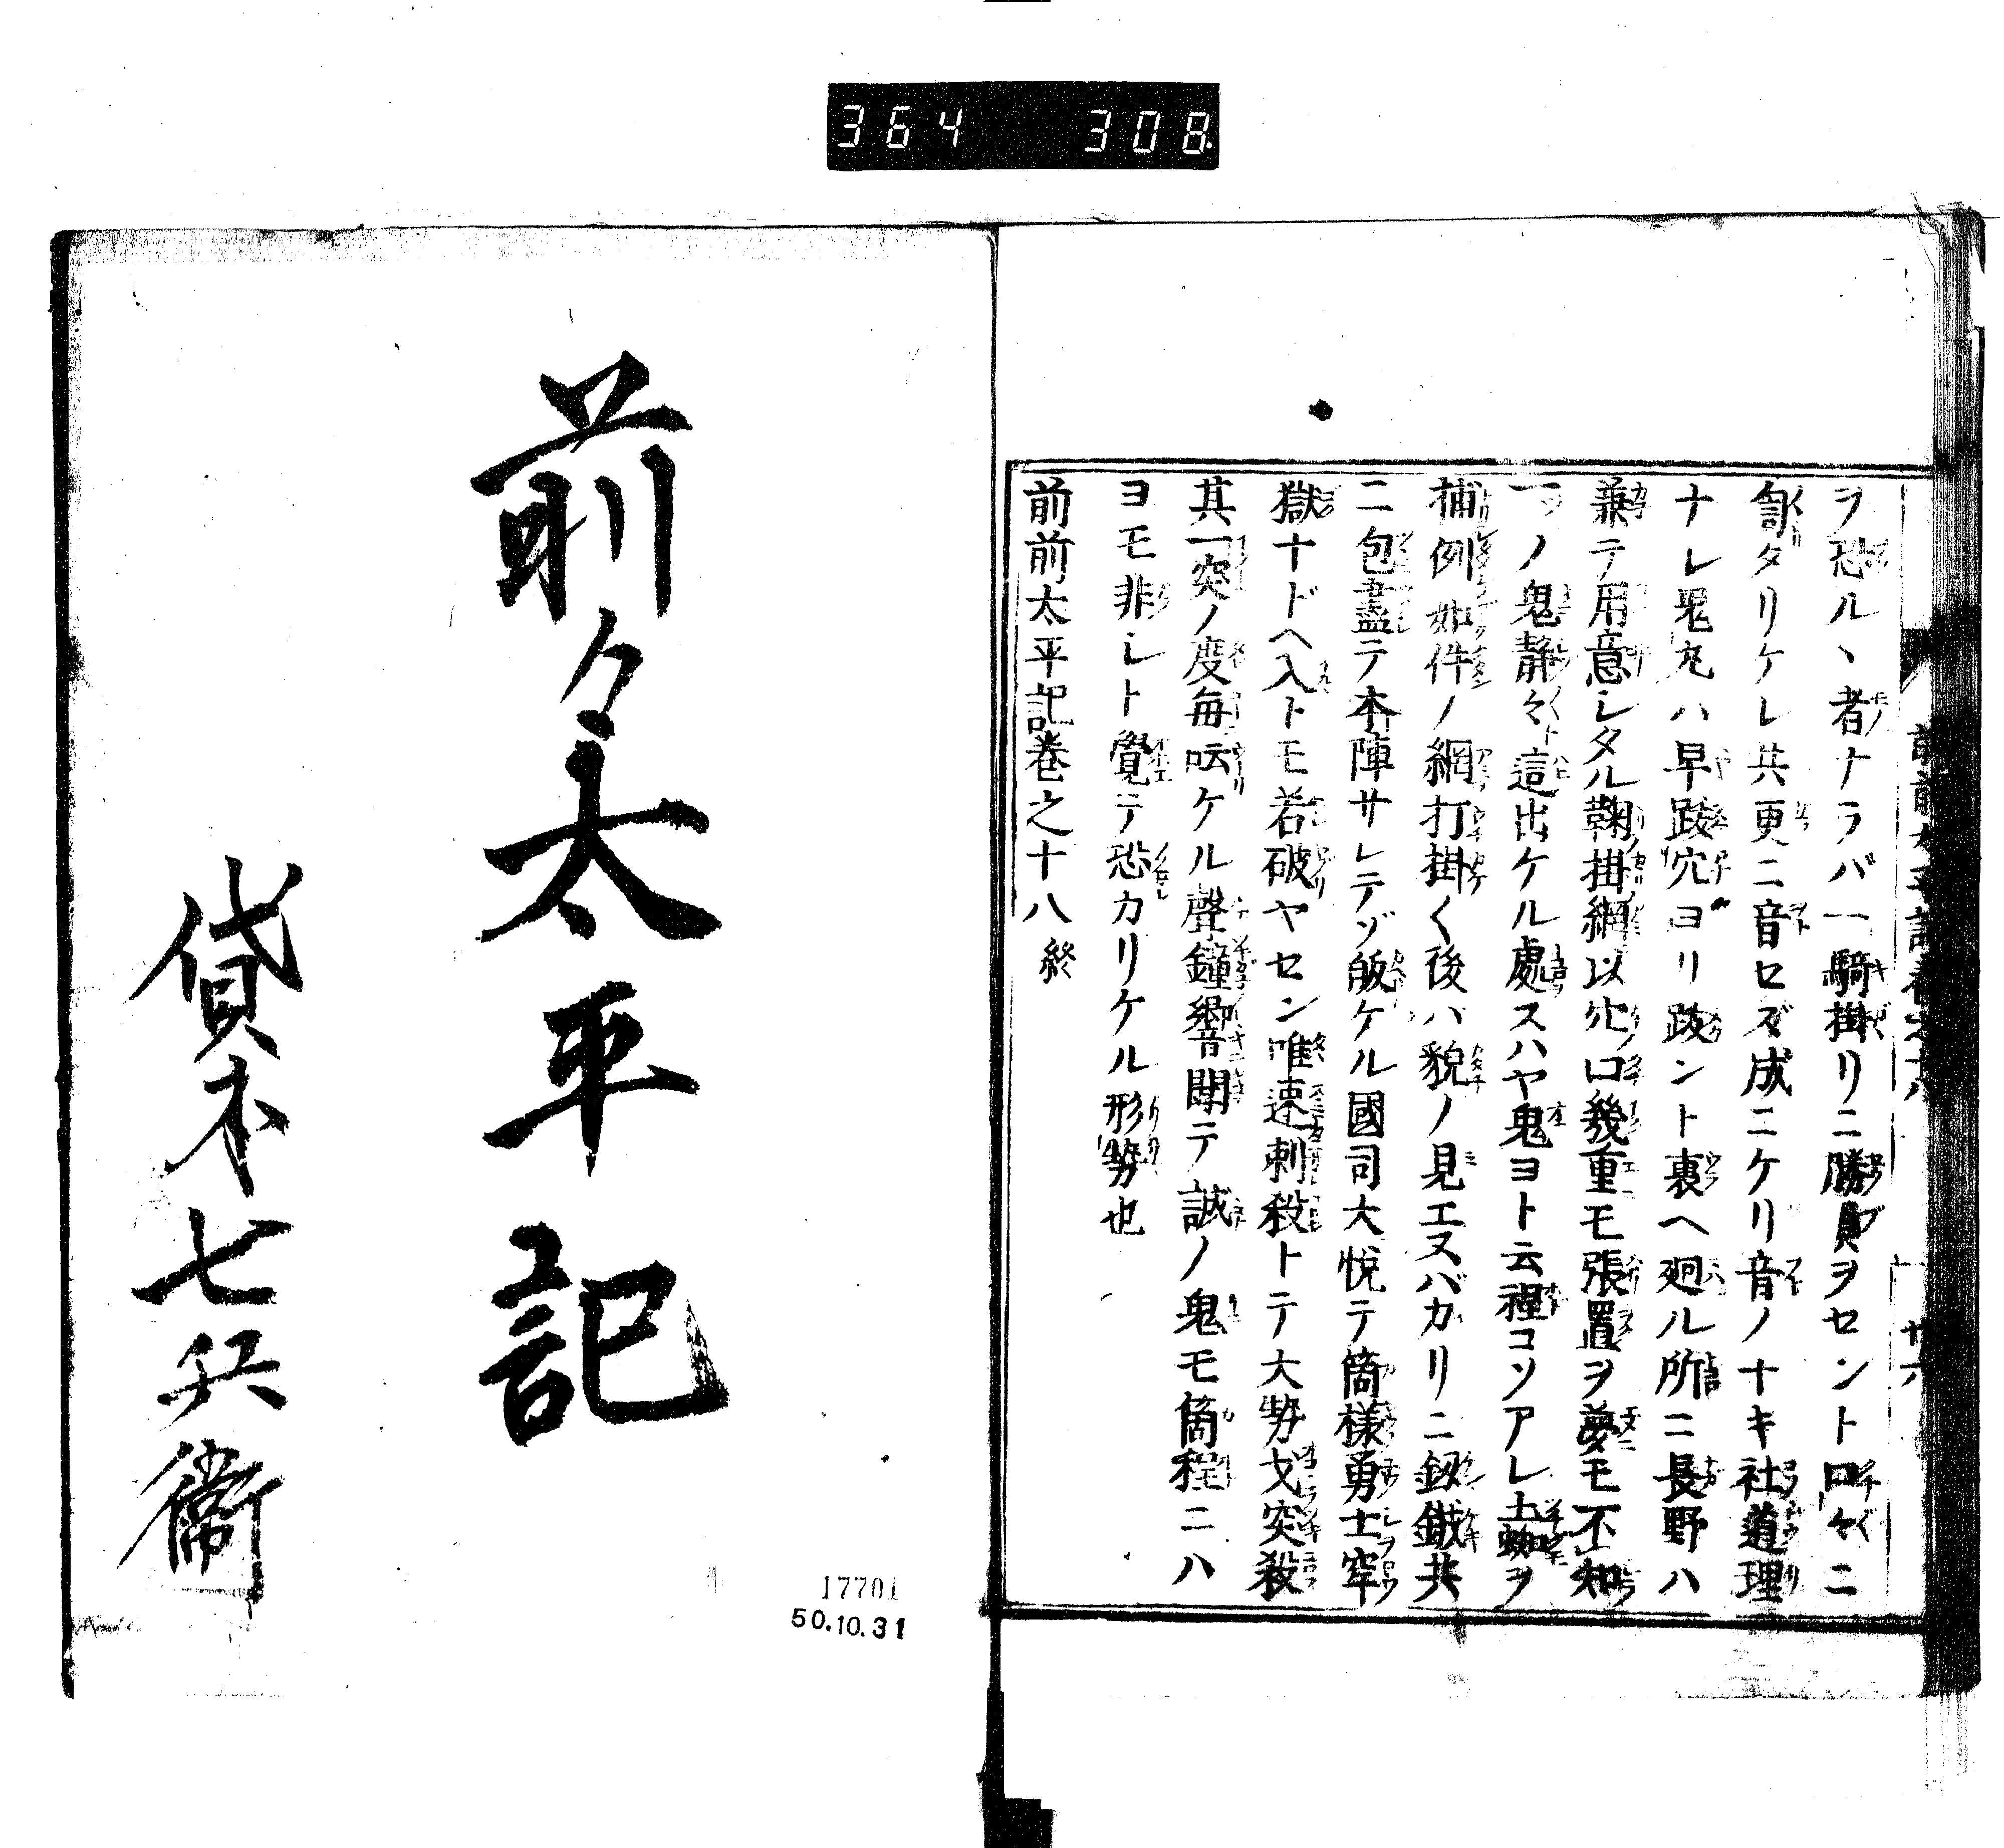 364 308
ヲ恐ルヽ者ナラバ一騎掛リニ勝負ヲセント口々ニ
訇タリケレ共更ニ音セズ成ニケリ音ノナキ社道理
ナレ鬼丸ハ早跂穴ヨリ跂ント裏ヘ廻ル所ニ長野ハ
兼テ用意シタル鞠掛網以穴口幾重モ張置ヲ夢モ不知
一ツノ鬼静々這出ケル處スハヤ鬼ヨト云裡コソアレ土蜘ヲ
捕例如件ノ網打掛〱後ハ貌ノ見エヌバカリニ釼鐡共
ニ包盡テ本陣サレテゾ皈ケル國司大悦テ箇様勇士窂
獄ナドヘ入トモ若破ヤセン唯速刺殺トテ大勢戈突殺
其一突ノ度毎呍ケル聲鐘響聞テ誠ノ鬼モ箇程ニハ
ヨモ非シト覺テ恐カリケル形勢也
前前太平記巻之十八終
前々太平記
貸本七兵衛
17701
50.10.31